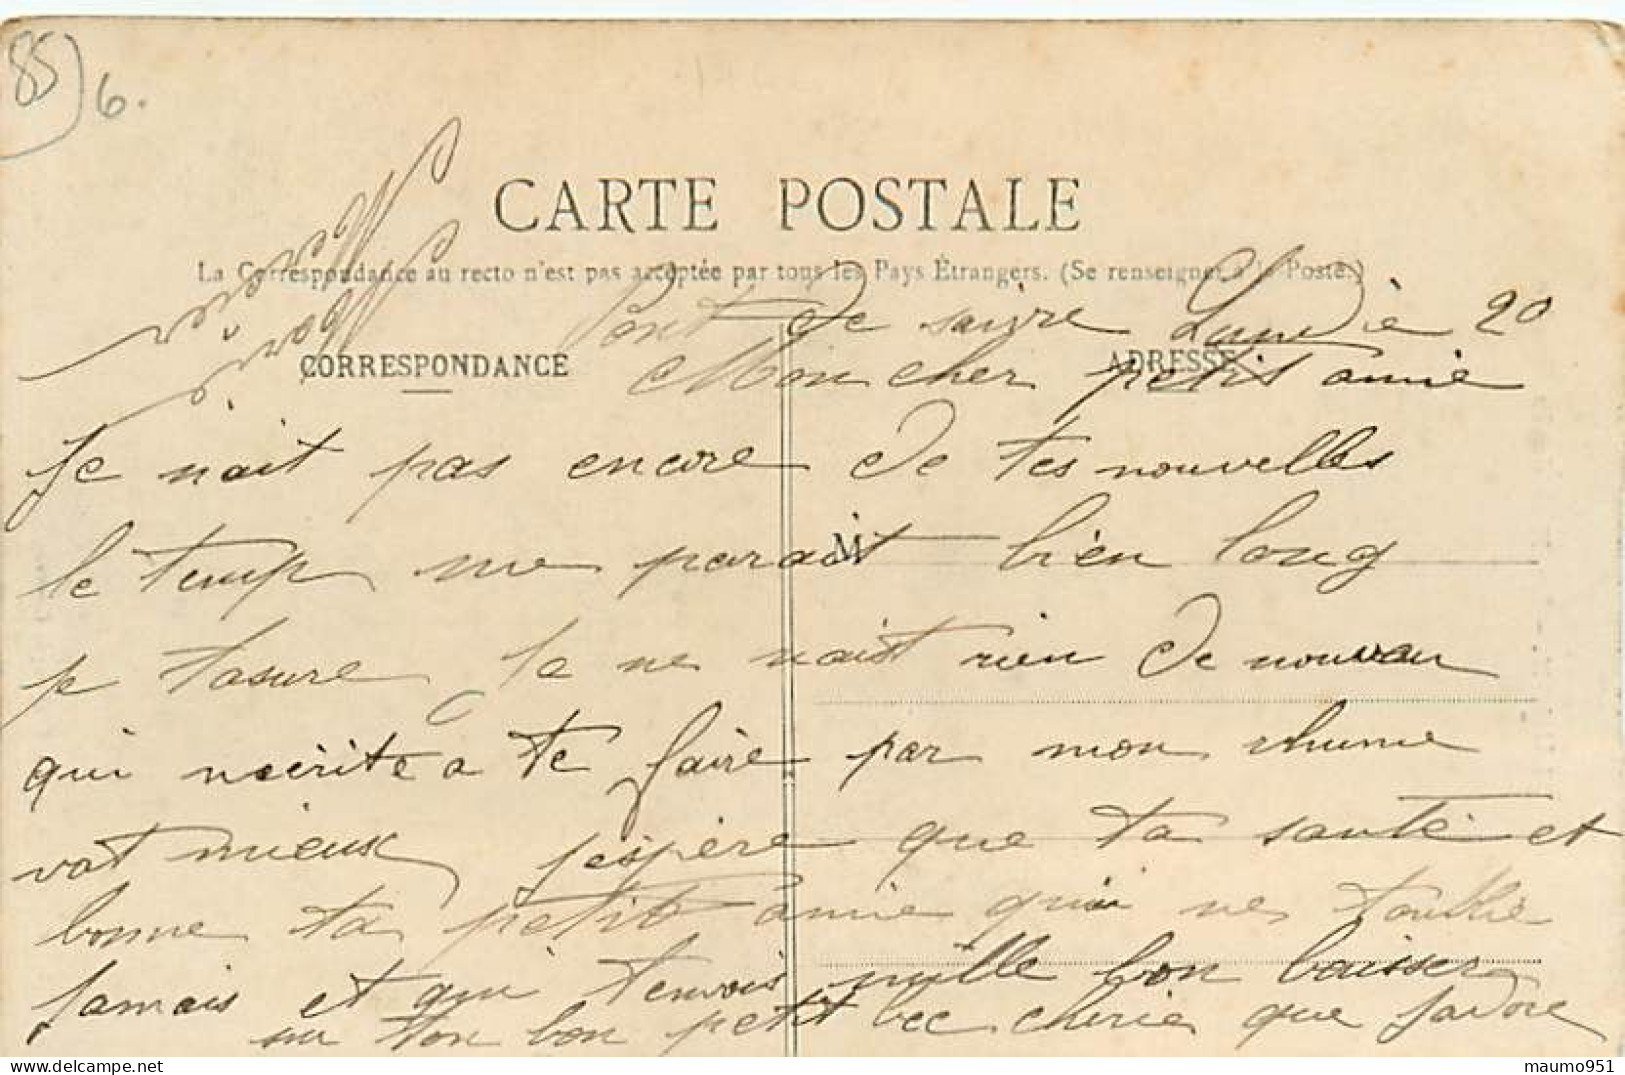 85) 6.
CARTE POSTALE
La Correspondance au recto n'est pas acceptée par tous les Pays Étrangers. (Se renseigner à la Poste.)
Pont de savre Lundie 20
CORRESPONDANCE ADRESSE
Mon cher petit amie
Je nait pas encore de tes nouvelles
M
le temp me parait bien long
je tasure Je ne nait rien de nouveau
qui nécrite a te faire par mon rhume
vat mieux j'espère que ta santé et
bonne ta petite amie qui ne toublie
jamais et qui t'envois mille bon baisser
sur ton bon petit bec cherie que j'adore
maumo951